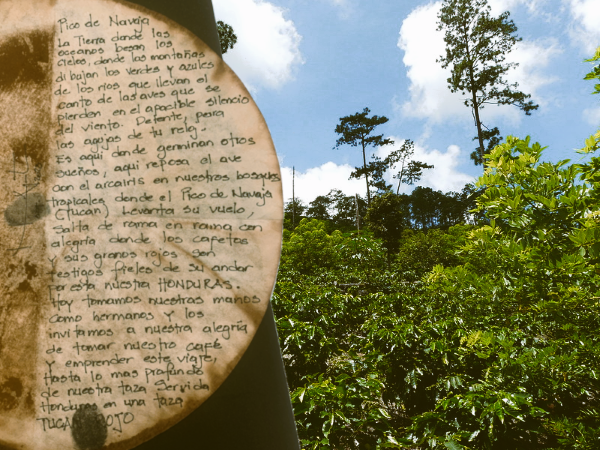 Pico de Navaja
La Tierra donde los
oceanos besan los
cielos, donde las montañas
dibujan los verdes y azules
de los ríos que llevan el
canto de las aves que se
pierden en el apacible silencio
del viento. Detente, para
las agujas de tu reloj.
Es aqui donde germinan otros
sueños, aqui reposa el ave
con el arcairis en nuestros bosques
tropicales donde el Pico de Navaja
(Tucan) levanta su vuelo,
salta de rama en rama con
alegria donde los cafetos
y sus granos rojos son
testigos fieles de su andar
por esta nuestra HONDURAS.
Hoy tomamos nuestras manos
como hermanos y los
invitamos a nuestra alegria
de tomar nuestro café
y emprender este viaje,
hasta lo mas profundo
de nuestra taza Servida
Honduras en una taza